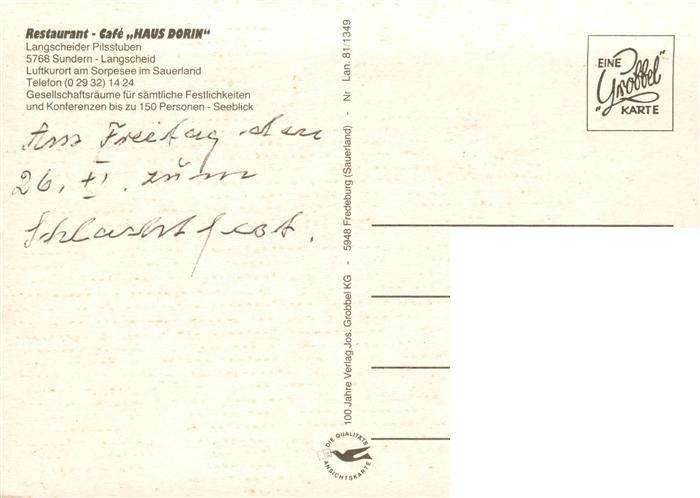 Restaurant - Café „HAUS DORIN“
Langscheider Pilsstuben
5768 Sundern - Langscheid
Luftkurort am Sorpesee im Sauerland
Telefon (0 29 32) 14 24
Gesellschaftsräume für sämtliche Festlichkeiten
und Konferenzen bis zu 150 Personen - Seeblick
Am Freitag den
26. XI. zum
Schlachtfest.
100 Jahre Verlag Jos. Grobbel KG - 5948 Fredeburg (Sauerland) - Nr Lan. 81/1349
EINE
„Grobbel“
KARTE
DIE QUALITÄTS
ANSICHTSKARTE